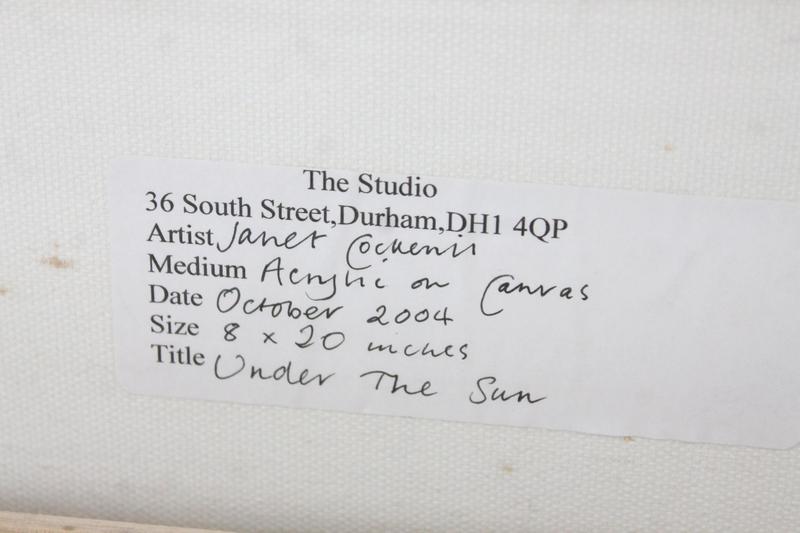 The Studio
36 South Street,Durham,DH1 4QP
Artist Janet
Medium Acrylic on Canvas
Date October 2004
Size 8 x 20 inches
Title Under The Sun